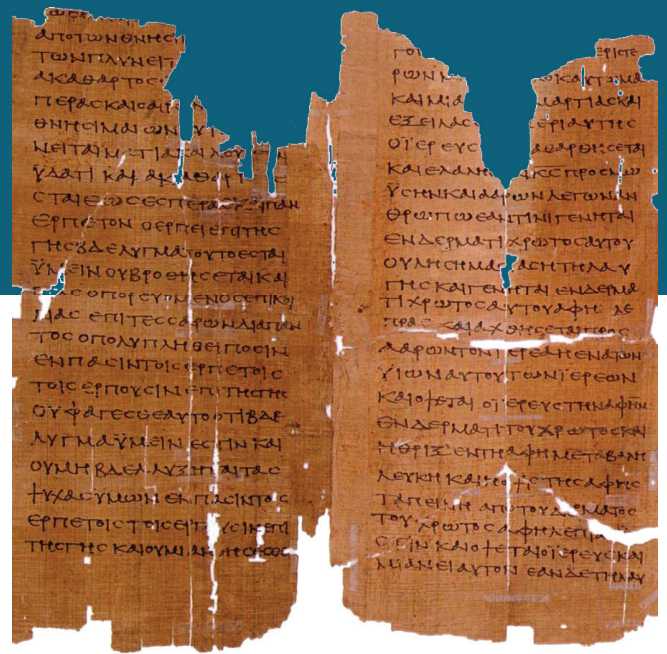 ΑΠΟΤΩΝΘΝΗϹΙ
ΤΩΝΠΛΥΝΕΙΤ
ΑΚΑΘΑΡΤΟϹ
ΠΕΡΑϹΚΑΙΟΑΙΡ
ΘΝΗϹΙΜΑΙΩΝ
ΝΕΙΤΑΙ ΤΙΑΚΑΙΛΟΥ
ΫΔΑΤΙ ΚΑΙ ΑΚΑΘΑΡ
ϹΤΑΙΕΩϹΕϹΠΕΡΑϹΚΑΙΠΑΝ
ΕΡΠΕΤΟΝ ΟΕΡΠΕΙΕΠΙΤΗϹ
ΓΗϹΒΔΕΛΥΓΜΑΤΟΥΤΟΕϹΤΑΙ
ΫΜΕΙΝΟΥΒΡΟΘΗϹΕΤΑΙΚΑΙ
ΠΑϹΟΠΟΡΕΥΟΜΕΝΟϹΕΠΙΚΟΙ
ΛΙΑϹ ΕΠΙΤΕϹϹΑΡΩΝΔΙΑΠΑΝ
ΤΟϹΟΠΟΛΥΠΛΗΘΕΙΠΟϹΙΝ
ΕΝΠΑϹΙΝΤΟΙϹΕΡΠΕΤΟΙϹ
ΤΟΙϹΕΡΠΟΥϹΙΝΕΠΙΤΗϹΓΗϹ
ΟΥΦΑΓΕϹΘΕΑΥΤΟΟΤΙΒΔΕ
ΛΥΓΜΑΫΜΕΙΝΕϹΤΙΝΚΑΙ
ΟΥΜΗΒΔΕΛΛΥΞΗΤΑΙΤΑϹ
ΨΥΧΑϹΥΜΩΝ ΕΝΠΑϹΙΝΤΟΙϹ
ΕΡΠΕΤΟΙϹΤΟΙϹΕΡΠΟΥϹΙΝΕΠΙ
ΤΗϹΓΗϹ ΚΑΙΟΥΜΙΑΝΘΗϹΕϹΘΕ
ΓΟΙ ΕΡΙϹΤΕ
ΡΩΝ ΚΑΥΤΩΜΑ
ΚΑΙΜΙΑ ΜΑΡΤΙΑϹΚΑΙ
ΕΞΕΙΛΑϹ ΕΡΙΑΥΤΗϹ
ΟΪΕΡΕΥϹ ΑΘΑΡΘΗϹΕΤΑΙ
ΚΑΙΕΛΑΛΗ ΚϹΠΡΟϹΜΩ
ΫϹΗΝΚΑΙΑΑΡΩΝΛΕΓΩΝΑΝ
ΘΡΩΠΩΕΑΝΤΙΝΙΓΕΝΗΤΑΙ
ΕΝΔΕΡΜΑΤΙΧΡΩΤΟϹΑΥΤΟΥ
ΟΥΛΗϹΗΜΑϹΙΑϹΗΤΗΛΑΥ
ΓΗϹΚΑΙΓΕΝΗΤΑΙΕΝΔΕΡΜΑ
ΤΙΧΡΩΤΟϹΑΥΤΟΥΑΦΗΛΕ
ΠΡΑϹ ΚΑΙΑΧΘΗϹΕΤΑΙΠΡΟϹ
ΑΑΡΩΝΤΟΝΪΕΡΕΑΗΕΝΑΤΩΝ
ΫΙΩΝΑΥΤΟΥΤΩΝΪΕΡΕΩΝ
ΚΑΙΟΨΕΤΑΙΟΪΕΡΕΥϹΤΗΝΑΦΗΝ
ΕΝΔΕΡΜΑΤΙΤΟΥΧΡΩΤΟϹΚΑΙ
ΗΘΡΙΞΕΝΤΗΑΦΗΜΕΤΑΒΑΛΗ
ΛΕΥΚΗΚΑΙΗΟΨΙϹΤΗϹΑΦΗϹ
ΤΑΠΕΙΝΗ ΑΠΟΤΟΥΔΕΡΜΑΤΟϹ
ΤΟΥΧΡΩΤΟϹΑΦΗΛΕΠΡΑ
ϹΤΙΝ ΚΑΙΟΨΕΤΑΙΟΪΕΡΕΥϹΚΑΙ
ΜΙΑΝΕΙΑΥΤΟΝ ΕΑΝΔΕΤΗΛΑΥ